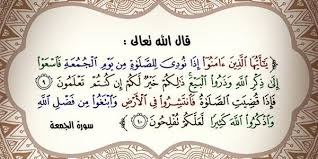 قال الله تعالى :
يَٰٓأَيُّهَا ٱلَّذِينَ ءَامَنُوٓا۟ إِذَا نُودِىَ لِلصَّلَوٰةِ مِن يَوْمِ ٱلْجُمُعَةِ فَٱسْعَوْا۟
إِلَىٰ ذِكْرِ ٱللَّهِ وَذَرُوا۟ ٱلْبَيْعَ ۚ ذَٰلِكُمْ خَيْرٌ لَّكُمْ إِن كُنتُمْ تَعْلَمُونَ ٩
فَإِذَا قُضِيَتِ ٱلصَّلَوٰةُ فَٱنتَشِرُوا۟ فِى ٱلْأَرْضِ وَٱبْتَغُوا۟ مِن فَضْلِ ٱللَّهِ
وَٱذْكُرُوا۟ ٱللَّهَ كَثِيرًا لَّعَلَّكُمْ تُفْلِحُونَ ١٠ سورة الجمعة